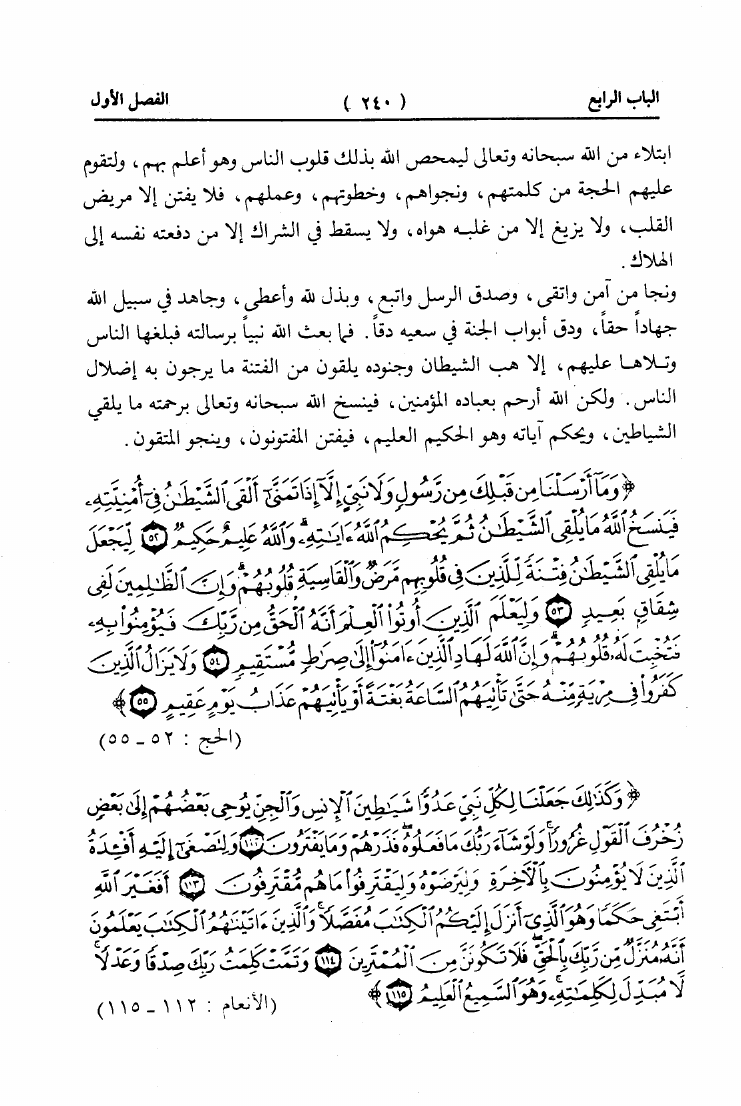 الباب الرابع ( ٢٤٠ ) الفصل الأول
ابتلاء من الله سبحانه وتعالى ليمحص الله بذلك قلوب الناس وهو أعلم بهم، ولتقوم
عليهم الحجة من كلمتهم، ونجواهم، وخطوتهم، وعملهم، فلا يفتن إلا مريض
القلب، ولا يزيغ إلا من غلبه هواه، ولا يسقط في الشراك إلا من دفعته نفسه إلى
الهلاك.
ونجا من آمن واتقى، وصدق الرسل واتبع، وبذل لله وأعطى، وجاهد في سبيل الله
جهاداً حقاً، ودق أبواب الجنة في سعيه دقاً. فما بعث الله نبياً برسالته فبلغها الناس
وتلاها عليهم، إلا هب الشيطان وجنوده يلقون من الفتنة ما يرجون به إضلال
الناس. ولكن الله أرحم بعباده المؤمنين، فينسخ الله سبحانه وتعالى برحمته ما يلقي
الشياطين، ويحكم آياته وهو الحكيم العليم، فيفتن المفتونون، وينجو المتقون.
﴿ وَمَآ أَرْسَلْنَا مِن قَبْلِكَ مِن رَّسُولٍ وَلَا نَبِيٍّ إِلَّآ إِذَا تَمَنَّىٰٓ أَلْقَى ٱلشَّيْطَٰنُ فِىٓ أُمْنِيَّتِهِۦ
فَيَنسَخُ ٱللَّهُ مَا يُلْقِى ٱلشَّيْطَٰنُ ثُمَّ يُحْكِمُ ٱللَّهُ ءَايَٰتِهِۦ ۗ وَٱللَّهُ عَلِيمٌ حَكِيمٌ ٥٢ لِّيَجْعَلَ
مَا يُلْقِى ٱلشَّيْطَٰنُ فِتْنَةً لِّلَّذِينَ فِى قُلُوبِهِم مَّرَضٌ وَٱلْقَاسِيَةِ قُلُوبُهُمْ ۗ وَإِنَّ ٱلظَّٰلِمِينَ لَفِى
شِقَاقٍۭ بَعِيدٍ ٥٣ وَلِيَعْلَمَ ٱلَّذِينَ أُوتُوا۟ ٱلْعِلْمَ أَنَّهُ ٱلْحَقُّ مِن رَّبِّكَ فَيُؤْمِنُوا۟ بِهِۦ
فَتُخْبِتَ لَهُۥ قُلُوبُهُمْ ۗ وَإِنَّ ٱللَّهَ لَهَادِ ٱلَّذِينَ ءَامَنُوٓا۟ إِلَىٰ صِرَٰطٍ مُّسْتَقِيمٍ ٥٤ وَلَا يَزَالُ ٱلَّذِينَ
كَفَرُوا۟ فِى مِرْيَةٍ مِّنْهُ حَتَّىٰ تَأْتِيَهُمُ ٱلسَّاعَةُ بَغْتَةً أَوْ يَأْتِيَهُمْ عَذَابُ يَوْمٍ عَقِيمٍ ٥٥ ﴾
(الحج : ٥٢ ـ ٥٥)
﴿ وَكَذَٰلِكَ جَعَلْنَا لِكُلِّ نَبِىٍّ عَدُوًّا شَيَٰطِينَ ٱلْإِنسِ وَٱلْجِنِّ يُوحِى بَعْضُهُمْ إِلَىٰ بَعْضٍ
زُخْرُفَ ٱلْقَوْلِ غُرُورًا ۚ وَلَوْ شَآءَ رَبُّكَ مَا فَعَلُوهُ ۖ فَذَرْهُمْ وَمَا يَفْتَرُونَ ١١٢ وَلِتَصْغَىٰٓ إِلَيْهِ أَفْـِٔدَةُ
ٱلَّذِينَ لَا يُؤْمِنُونَ بِٱلْءَاخِرَةِ وَلِيَرْضَوْهُ وَلِيَقْتَرِفُوا۟ مَا هُم مُّقْتَرِفُونَ ١١٣ أَفَغَيْرَ ٱللَّهِ
أَبْتَغِى حَكَمًا وَهُوَ ٱلَّذِىٓ أَنزَلَ إِلَيْكُمُ ٱلْكِتَٰبَ مُفَصَّلًا ۚ وَٱلَّذِينَ ءَاتَيْنَٰهُمُ ٱلْكِتَٰبَ يَعْلَمُونَ
أَنَّهُۥ مُنَزَّلٌ مِّن رَّبِّكَ بِٱلْحَقِّ ۖ فَلَا تَكُونَنَّ مِنَ ٱلْمُمْتَرِينَ ١١٤ وَتَمَّتْ كَلِمَتُ رَبِّكَ صِدْقًا وَعَدْلًا ۚ
لَّا مُبَدِّلَ لِكَلِمَٰتِهِۦ ۚ وَهُوَ ٱلسَّمِيعُ ٱلْعَلِيمُ ١١٥ ﴾
(الأنعام : ١١٢ ـ ١١٥)